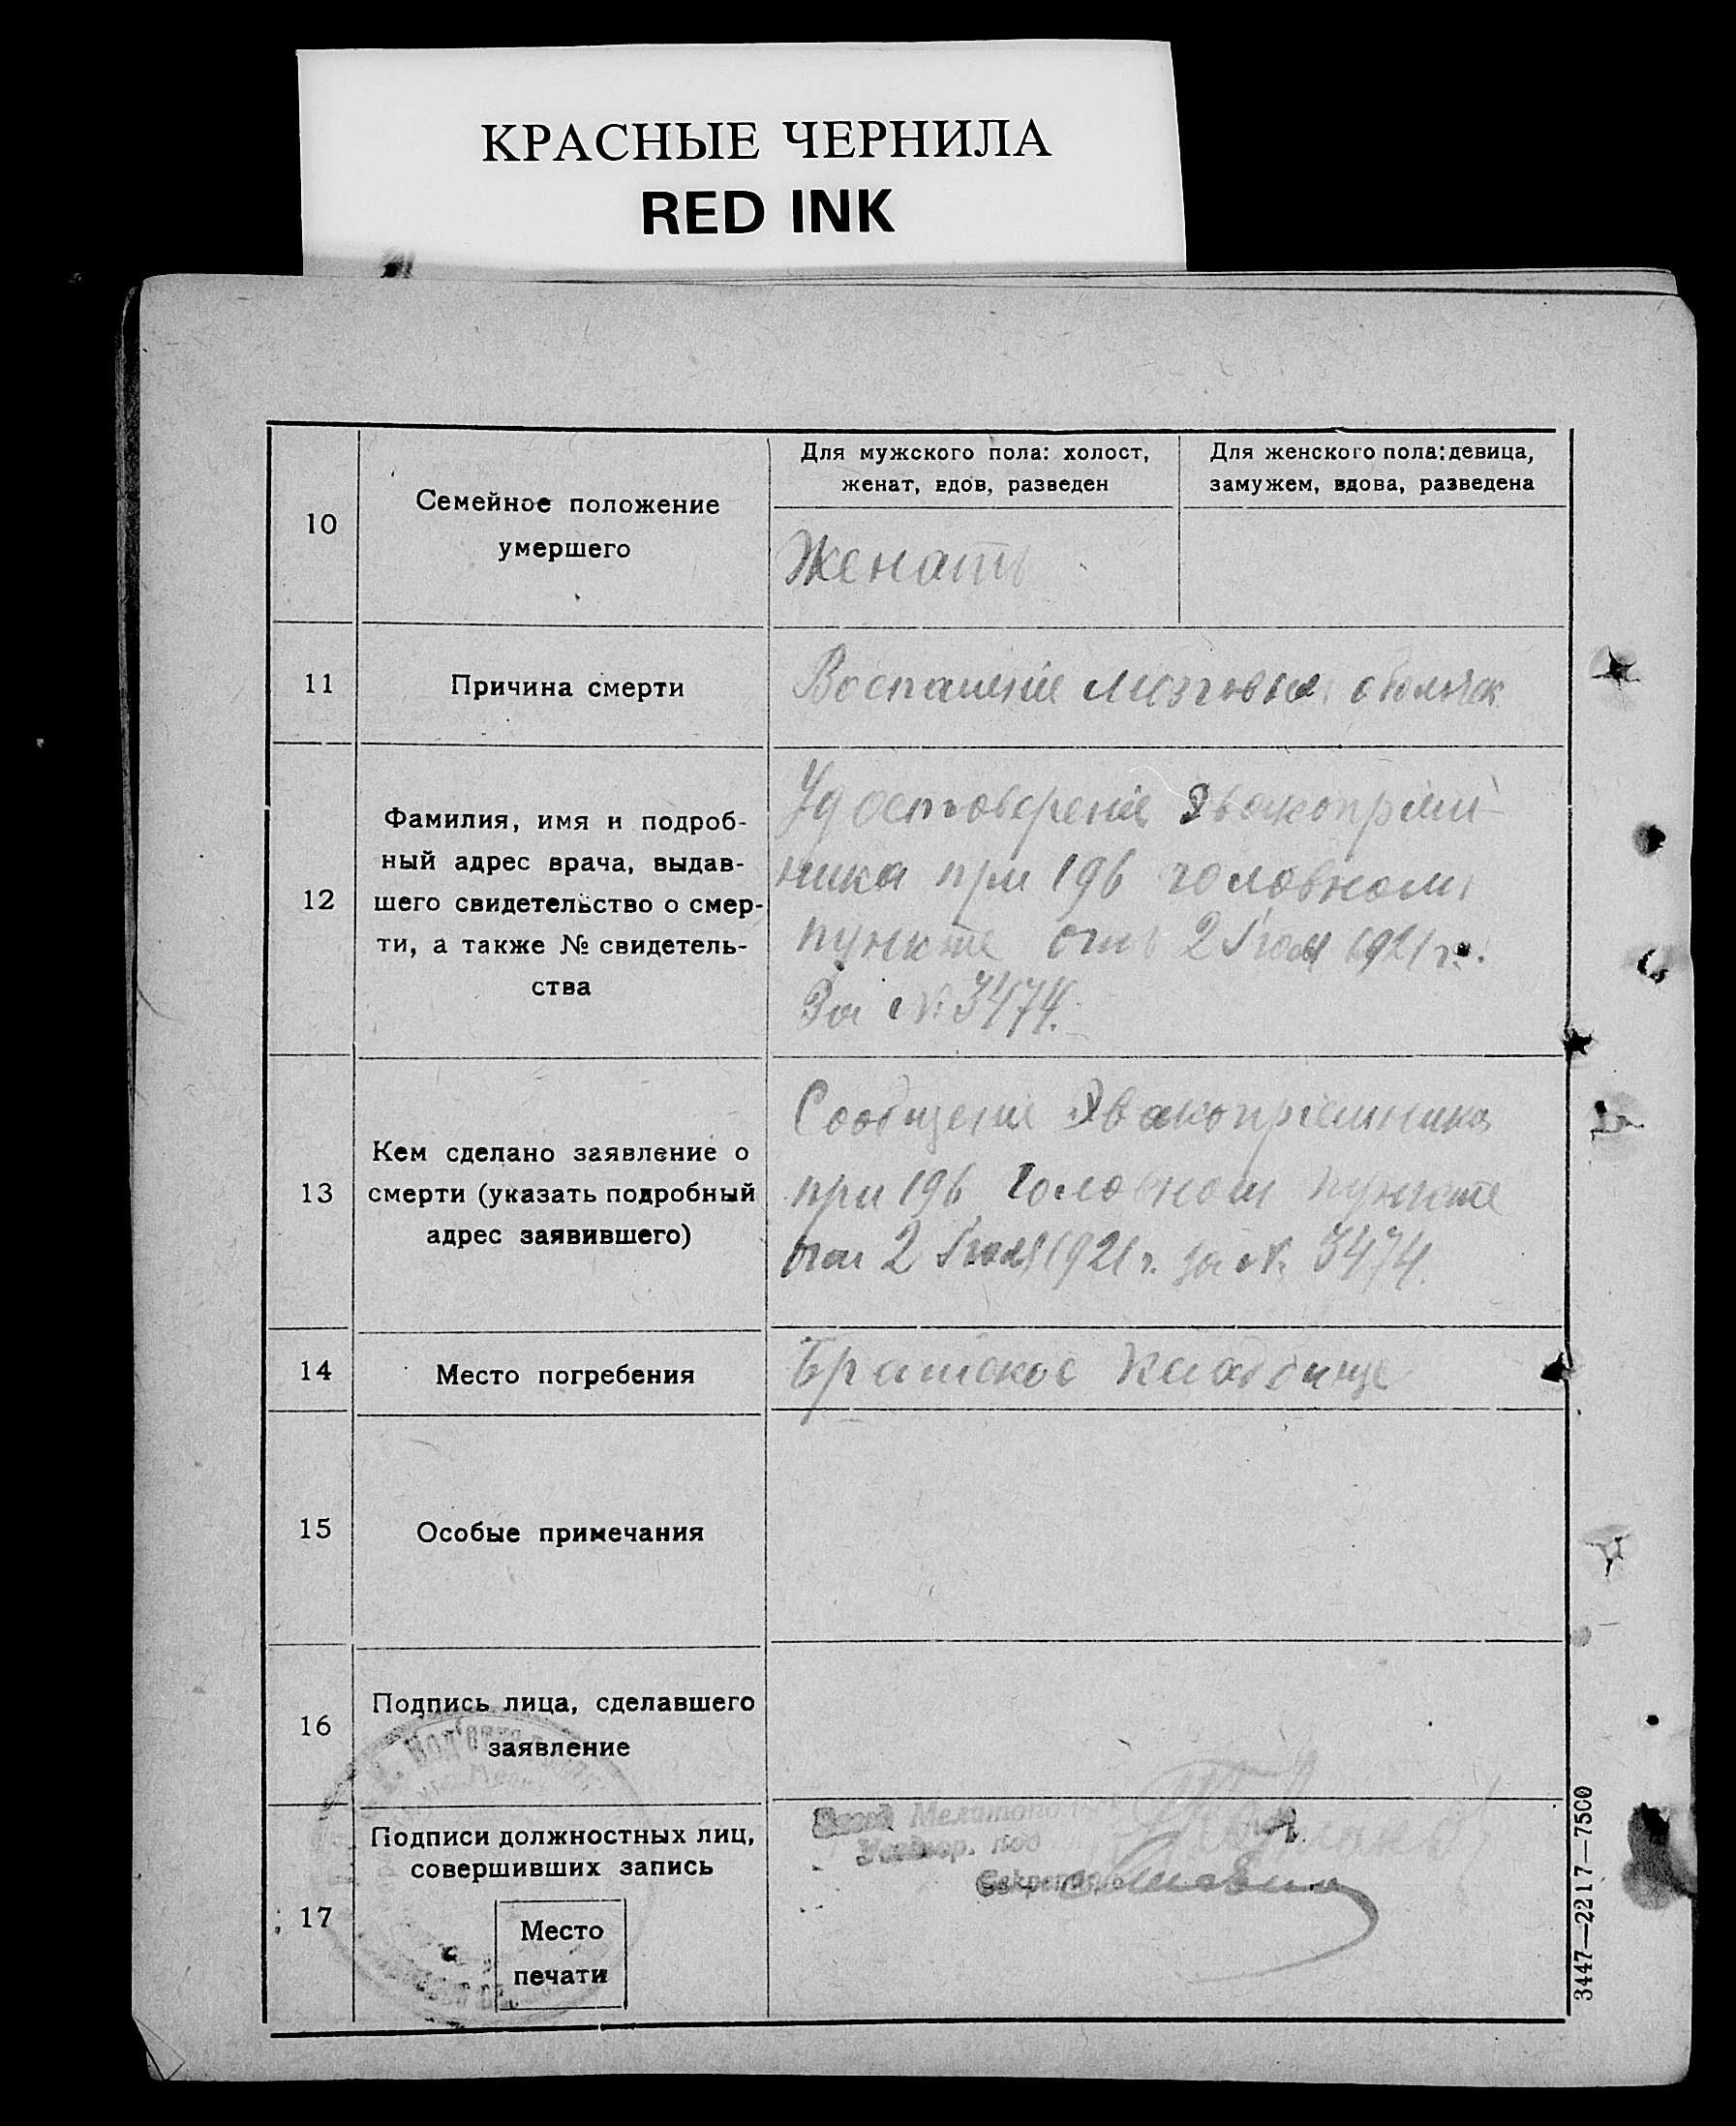 КРАСНЫЕ ЧЕРНИЛА
RED INK
10
Семейное положение
умершего
Для мужского пола: холост,
женат, вдов, разведен
Для женского пола: девица,
замужем, вдова, разведена
Женатъ
11
Причина смерти
Воспаленіе мозговых оболочек
12
Фамилия, имя и подроб-
ный адрес врача, выдав-
шего свидетельство о смер-
ти, а также № свидетель-
ства
Удостоверение Эвакоприем-
ника при 196 головном
пункте отъ 2 1921 г.
За № 3474.
13
Кем сделано заявление о
смерти (указать подробный
адрес заявившего)
Сообщение Эвакоприемника
при 196 Головном пункте
от 2 1921 г. за № 3474.
14
Место погребения
Братское Кладбище
15
Особые примечания
16
Подпись лица, сделавшего
заявление
17
Подписи должностных лиц,
совершивших запись
Место
печати
3447—2217—7500